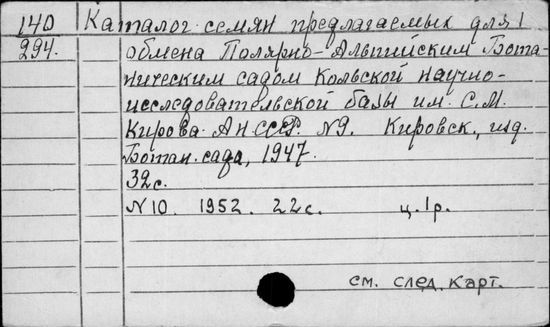 140 Каталог семян предлагаемых для
294. обмена Полярно-Альпийским Бота-
ническим садом Кольской научно-
исследовательской базы им. С.М.
Кирова АН СССР. №9. Кировск, изд.
Ботан. сада, 1947.
32с.
№10. 1952. 22с. ц. 1р.
см. след. карт.